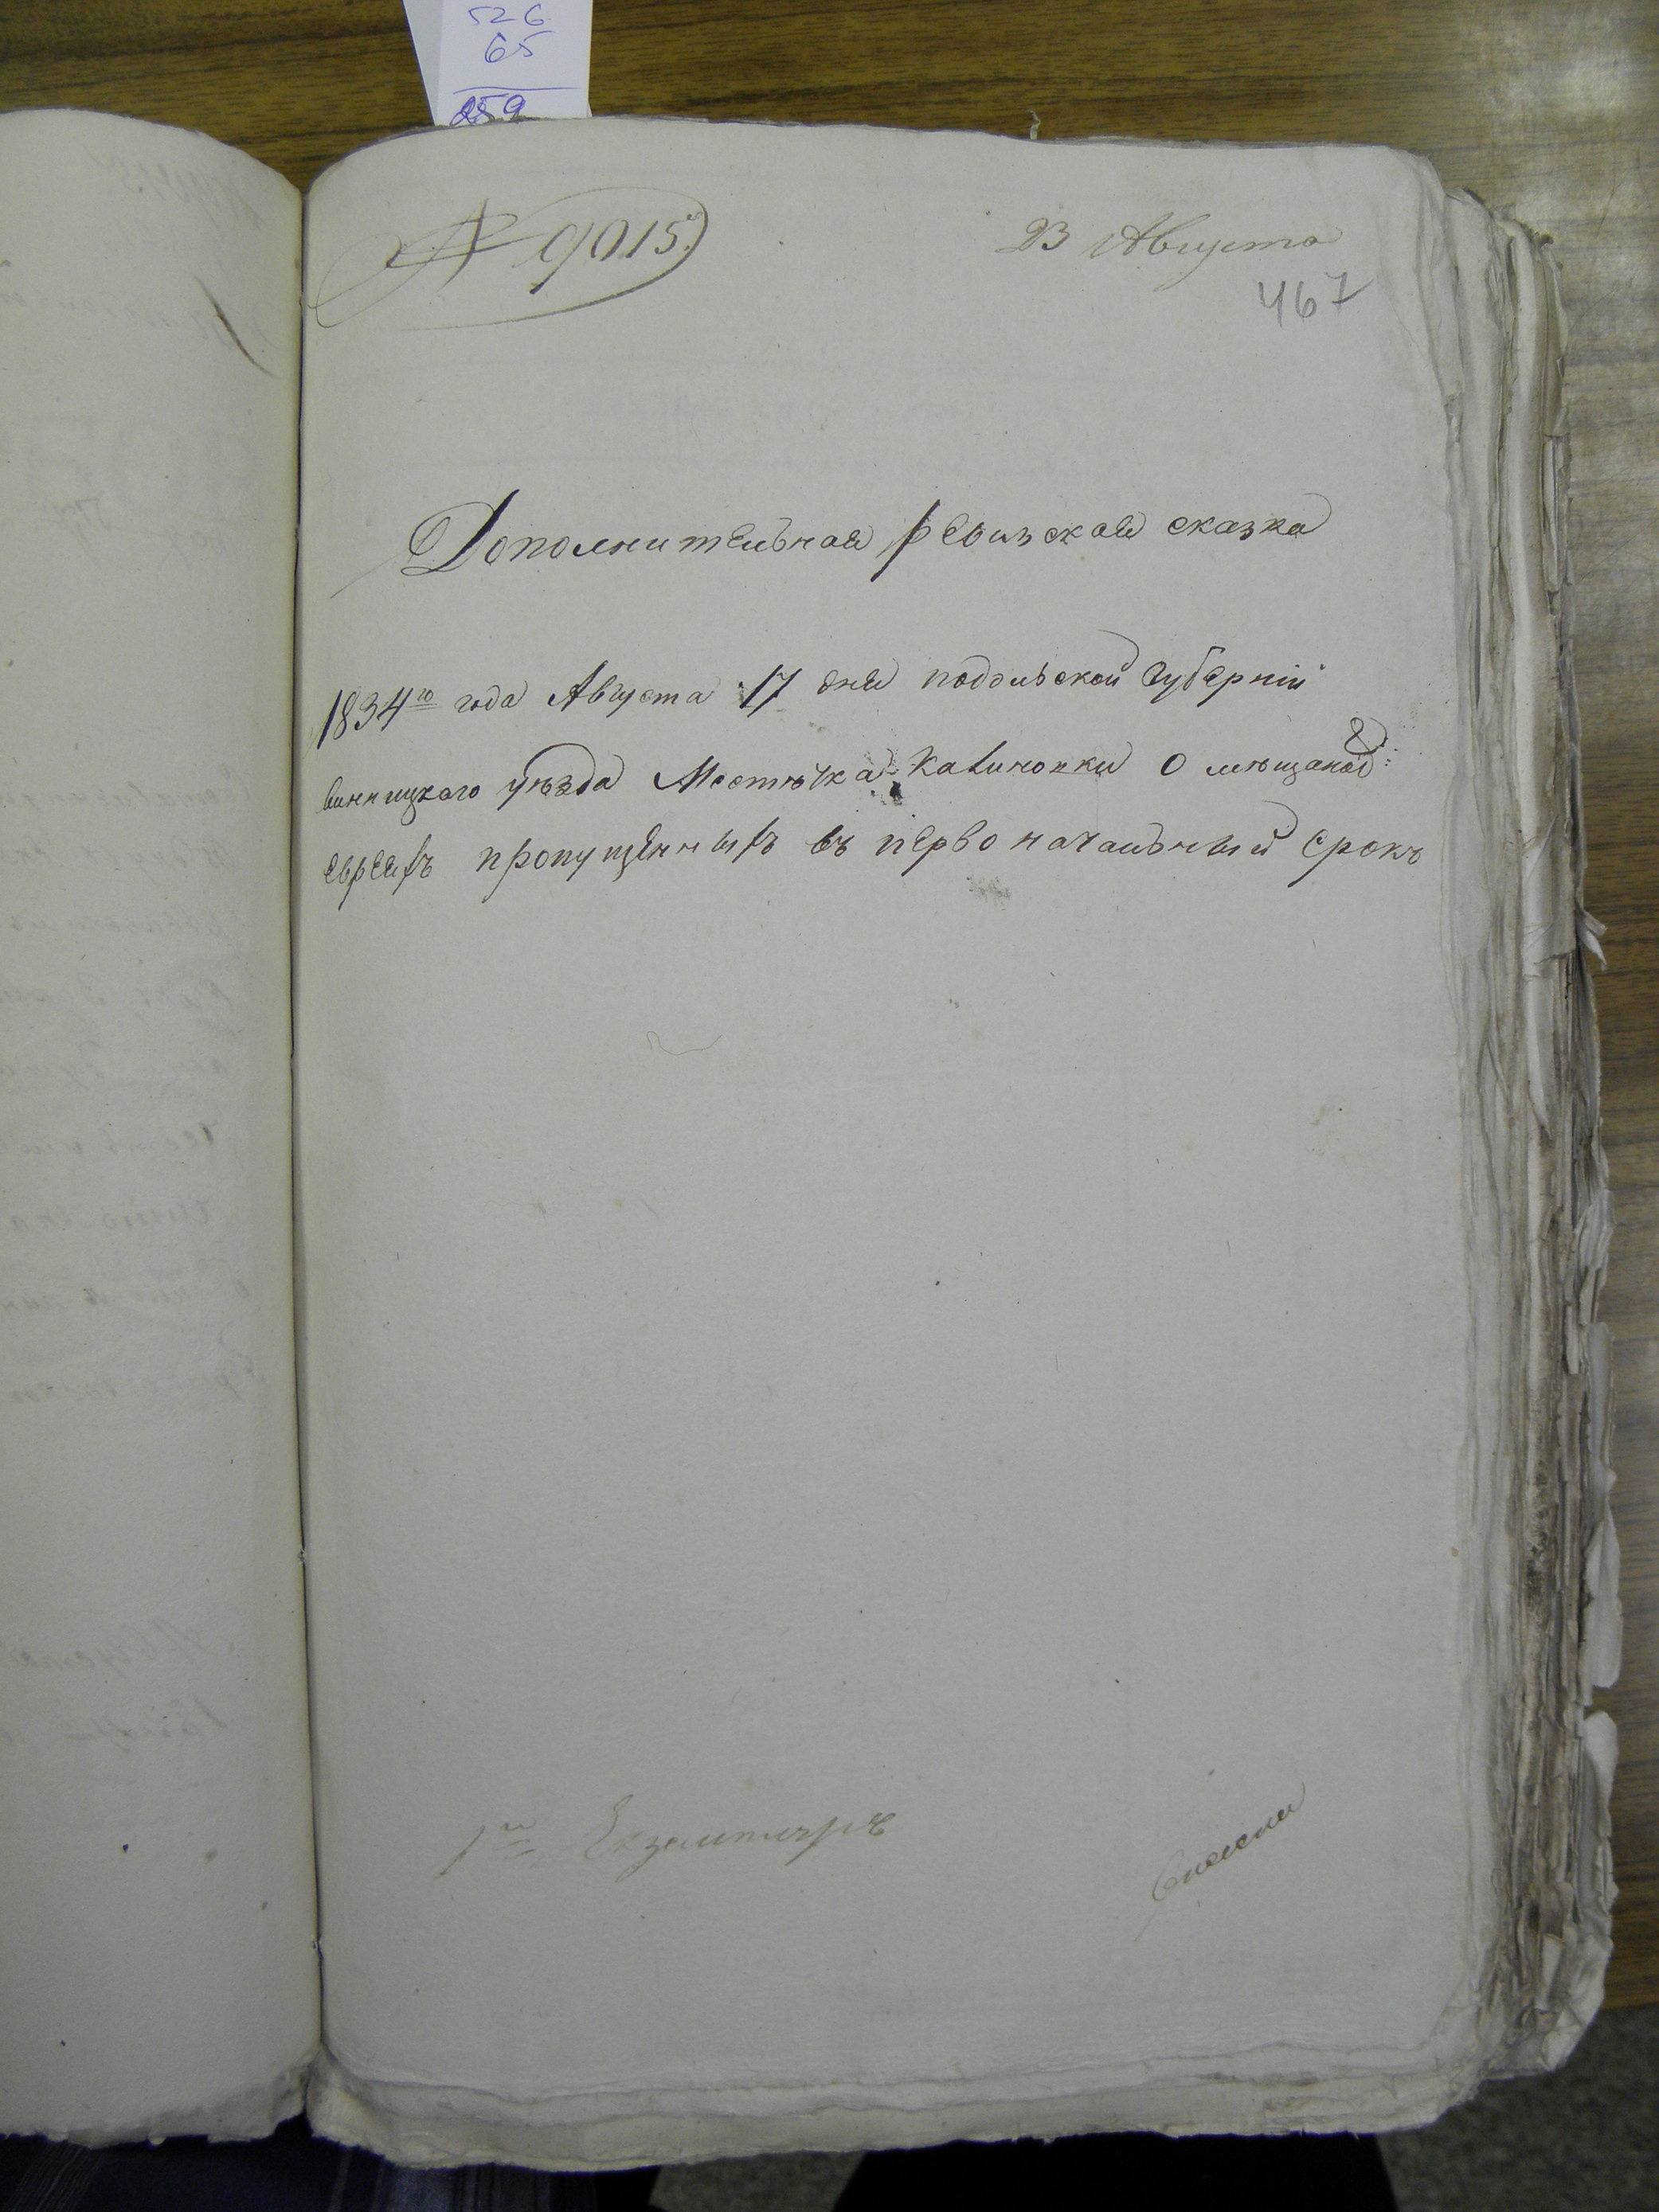 526
65
259
№ 9015.
23 Августа
467
Дополнительная ревизская сказка
1834го года Августа 17 дня подольской губерніи
винницкого уѣзда Местѣчка Калиновки О мѣщанах:
евреяхъ пропущенныхъ въ первоначальный срокъ
1й Екземпляръ